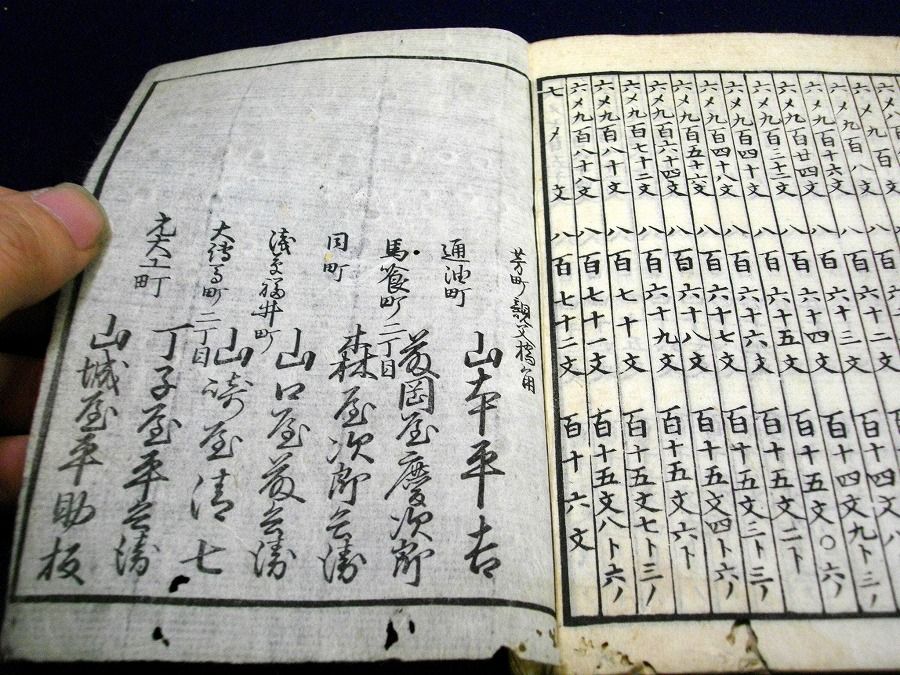 六メ九百 文
六メ九百八文
六メ九百十六文 八百六十二文
六メ九百廿四文 八百六十三文 百十四文八ト
六メ九百三十二文 八百六十四文 百十四文九ト三ノ
六メ九百四十文 八百六十五文 百十五文〇六ノ
六メ九百四十八文 八百六十六文 百十五文二ト
六メ九百五十六文 八百六十七文 百十五文三ト三ノ
六メ九百六十四文 八百六十八文 百十五文四ト六ノ
六メ九百七十二文 八百六十九文 百十五文六ト
六メ九百八十文 八百七十文 百十五文七ト三ノ
六メ九百八十八文 八百七十一文 百十五文八ト六ノ
七メ 文 八百七十二文 百十六文
芳町親父橋角
通油町 山本平吉
馬喰町二丁目 藤岡屋慶次郎
同町 森屋次郎兵衛
浅草福井町 山口屋藤兵衛
大傳馬町二丁目 山崎屋清七
丁子屋平兵衛
元大工町 山城屋平助板